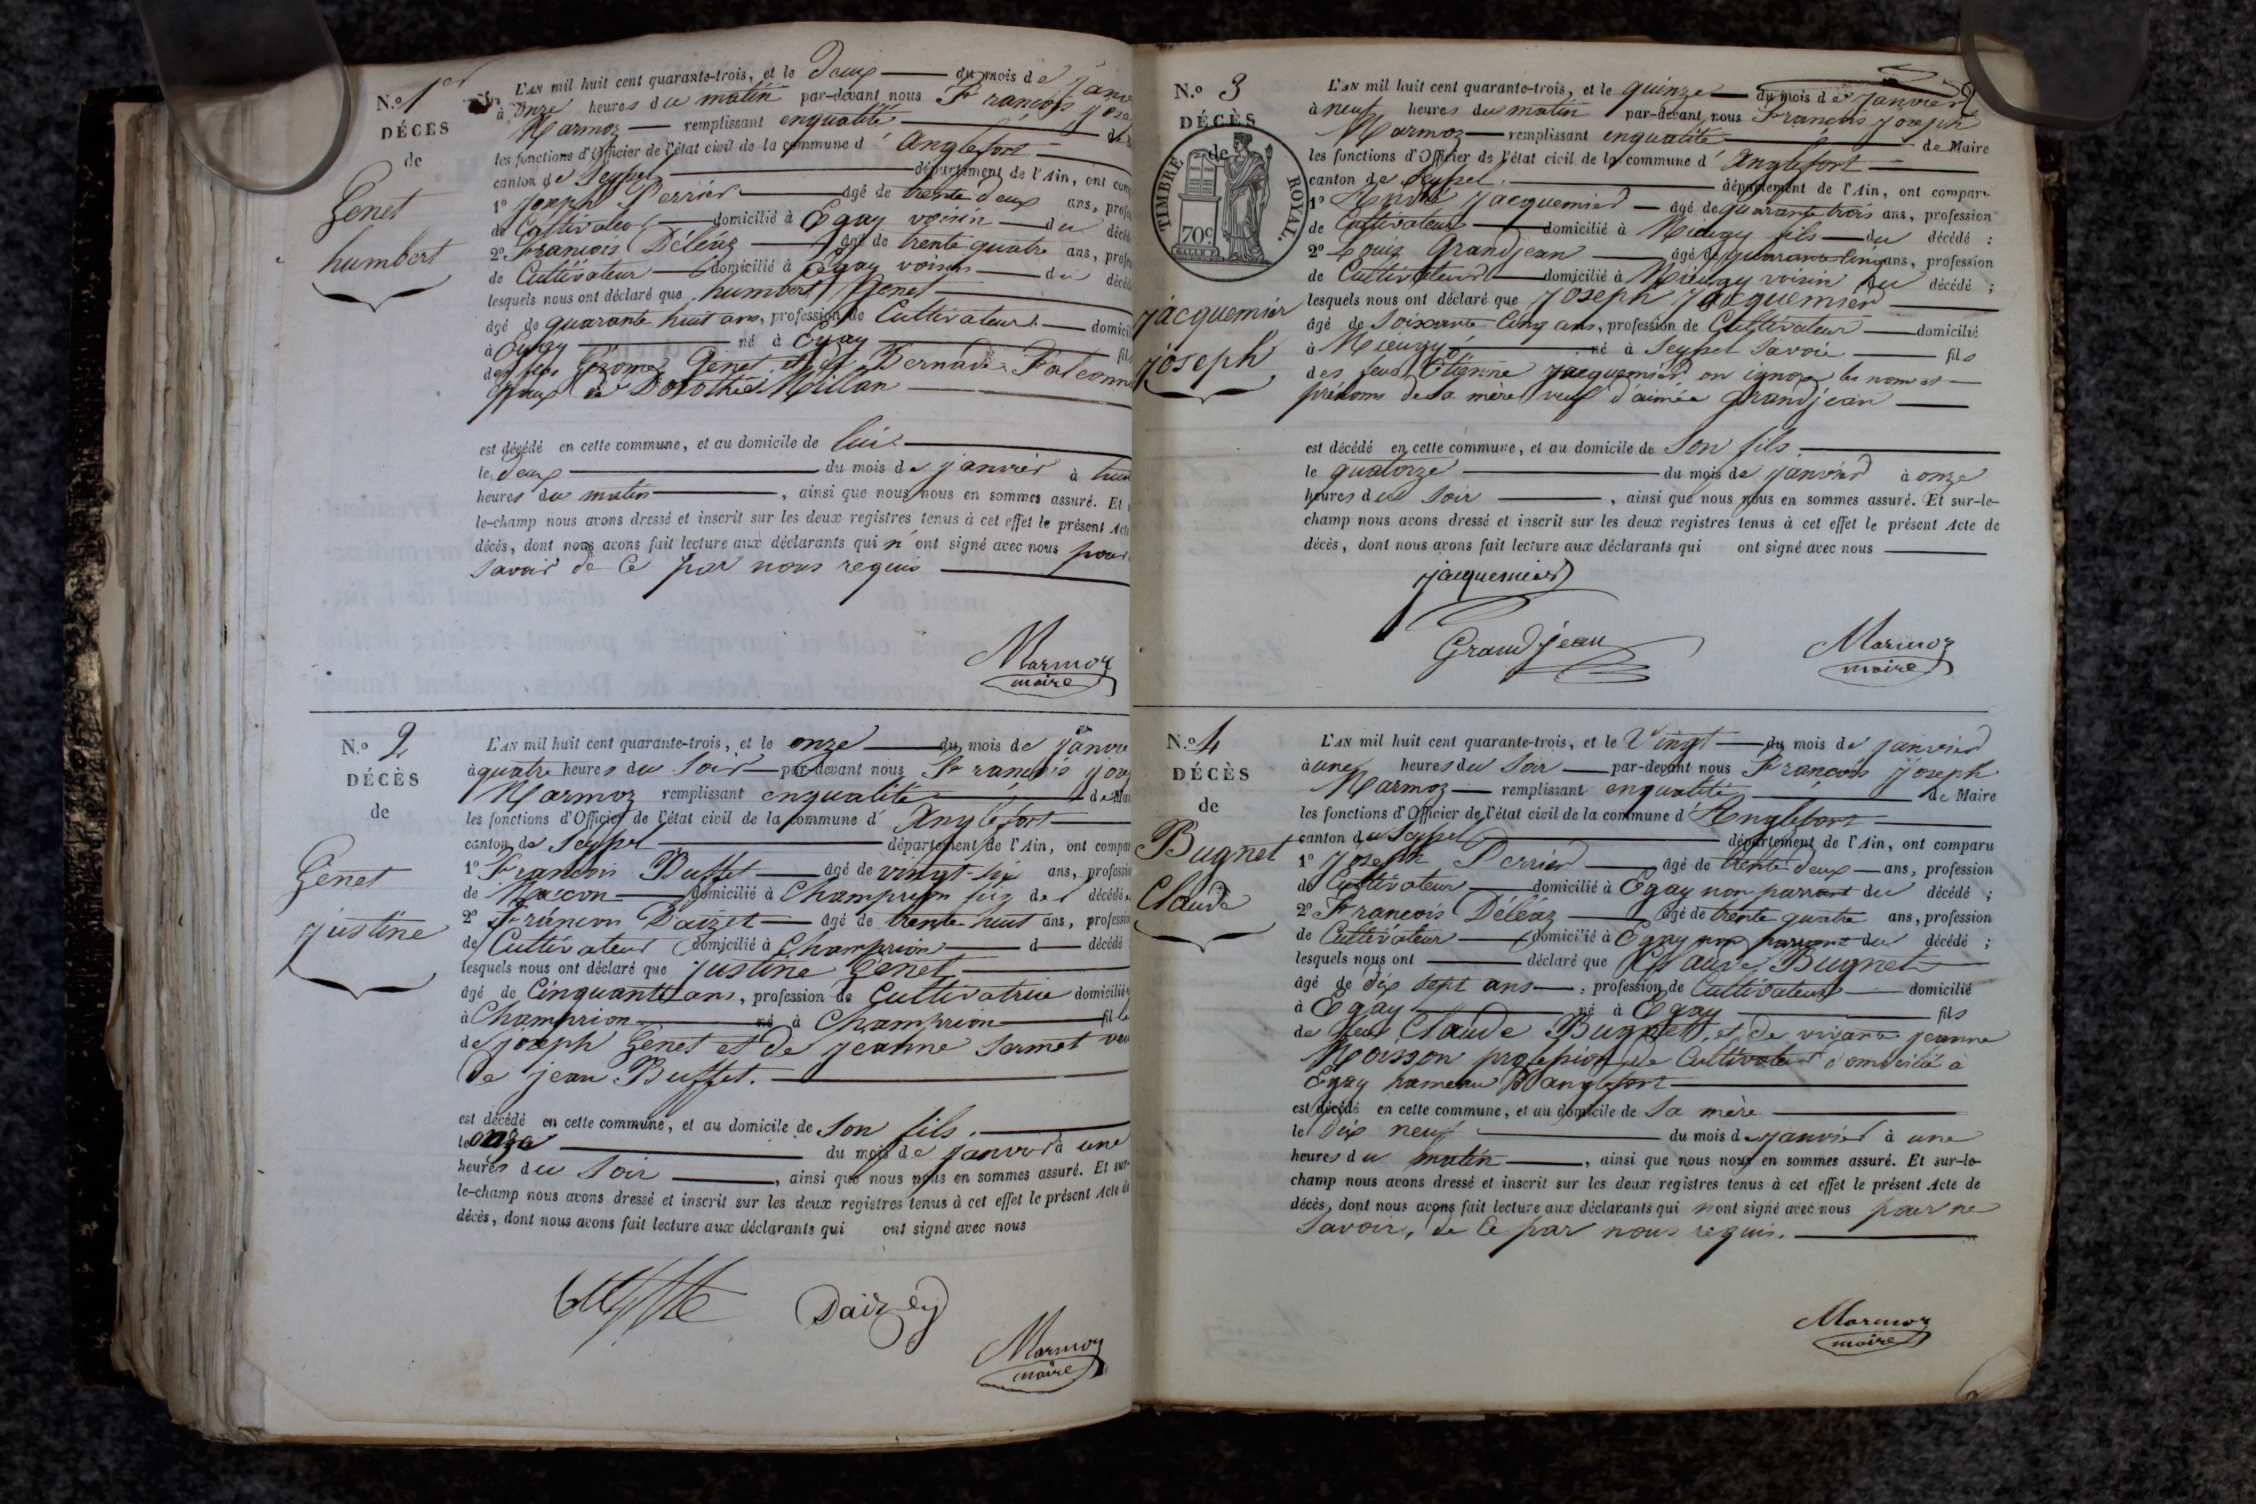 N.o 1er
DÉCÈS
de
Genet
humbert
L'AN mil huit cent quarante-trois, et le deux du mois de janv
à onze heures du matin par-devant nous François jose
Marmoz remplissant enqualité de
les fonctions d'Officier de l'état civil de la commune d' Anglefort
canton de Seyssel département de l'Ain, ont com
1o joseph Perrier âgé de trente deux ans, profe
de Cultivateur domicilié à Egay voisin du décéd
2o François Déléaz âgé de trente quatre ans, profe
de Cultivateur domicilié à Egay voisin du décéd
lesquels nous ont déclaré que humbert Genet
âgé de quarante huit ans, profession de Cultivateur domicil
à Egay né à Egay fils
des feus Genet et Falconn
époux de Dorothée
est décédé en cette commune, et au domicile de lui
le deux du mois de janvier à
heures du matin, ainsi que nous nous en sommes assuré. Et
le-champ nous avons dressé et inscrit sur les deux registres tenus à cet effet le présent Acte
décès, dont nous avons fait lecture aux déclarants qui n'ont signé avec nous pour
savoir de Ce par nous requis
Marmoz
maire
N.o 2
DÉCÈS
de
Genet
justine
L'AN mil huit cent quarante-trois, et le onze du mois de janvi
à quatre heures du soir par-devant nous François jose
Marmoz remplissant enqualité de Mai
les fonctions d'Officier de l'état civil de la commune d' Anglefort
canton de Seyssel département de l'Ain, ont compar
1o François Buffet âgé de vingt-six ans, professio
de Macon domicilié à Champrion fils de l décédée
2o François Daizet âgé de trente huit ans, professio
de Cultivateur domicilié à Champrion d décédé
lesquels nous ont déclaré que justine Genet
âgé de Cinquante ans, profession de Cultivatrice domiciliée
à Champrion né à Champrion fille
de joseph Genet et de jeanne Sermet veu
de jean Buffet.
est décédé en cette commune, et au domicile de son fils.
le onze du mois de janvier à une
heures du soir, ainsi que nous nous en sommes assuré. Et sur-
le-champ nous avons dressé et inscrit sur les deux registres tenus à cet effet le présent Acte de
décès, dont nous avons fait lecture aux déclarants qui ont signé avec nous
Daizey
Marmoz
maire
N.o 3
DÉCÈS
de
TIMBRE ROYAL.
70c
jacquemier
joseph
2
L'AN mil huit cent quarante-trois, et le quinze du mois de janvier
à neuf heures du matin par-devant nous François joseph
Marmoz remplissant enqualité de Maire
les fonctions d'Officier de l'état civil de la commune d' Anglefort
canton de Seyssel département de l'Ain, ont comparu
1o André jacquemier âgé de quarante trois ans, profession
de Cultivateur domicilié à Mieugy fils du décédé :
2o Louis Grandjean âgé de quarante Cinq ans, profession
de Cultivateur domicilié à Mieugy voisin du décédé ;
lesquels nous ont déclaré que joseph jacquemier
âgé de soixante Cinq ans, profession de Cultivateur domicilié
à Mieugy né à Seyssel Savoie fils
des feus Etienne jacquemier on ignore les nom et
prénoms de sa mère veuf d'aimée grandjean
est décédé en cette commune, et au domicile de son fils.
le quatorze du mois de janvier à onze
heures du soir, ainsi que nous nous en sommes assuré. Et sur-le-
champ nous avons dressé et inscrit sur les deux registres tenus à cet effet le présent Acte de
décès, dont nous avons fait lecture aux déclarants qui ont signé avec nous
jacquemier
Grandjean
Marmoz
maire
N.o 4
DÉCÈS
de
Bugnet
Claude
L'AN mil huit cent quarante-trois, et le Vingt du mois de janvier
à une heures du soir par-devant nous François joseph
Marmoz remplissant enqualité de Maire
les fonctions d'Officier de l'état civil de la commune d' Anglefort
canton de Seyssel département de l'Ain, ont comparu
1o joseph Perrier âgé de trente deux ans, profession
de Cultivateur domicilié à Egay non parrant du décédé ;
2o François Déléaz âgé de trente quatre ans, profession
de Cultivateur domicilié à Egay non parrant du décédé ;
lesquels nous ont déclaré que Claude Bugnet
âgé de dix sept ans, profession de Cultivateur domicilié
à Egay né à Egay fils
de feu Claude Bugnet, et de vivante jeanne
Moisson profession de Cultivateur domicilié à
Egay hameau D'anglefort
est décédé en cette commune, et au domicile de sa mère
le dix neuf du mois de janvier à une
heures du matin, ainsi que nous nous en sommes assuré. Et sur-le-
champ nous avons dressé et inscrit sur les deux registres tenus à cet effet le présent Acte de
décès, dont nous avons fait lecture aux déclarants qui n'ont signé avec nous pour ne
savoir, de Ce par nous requis.
Marmoz
maire